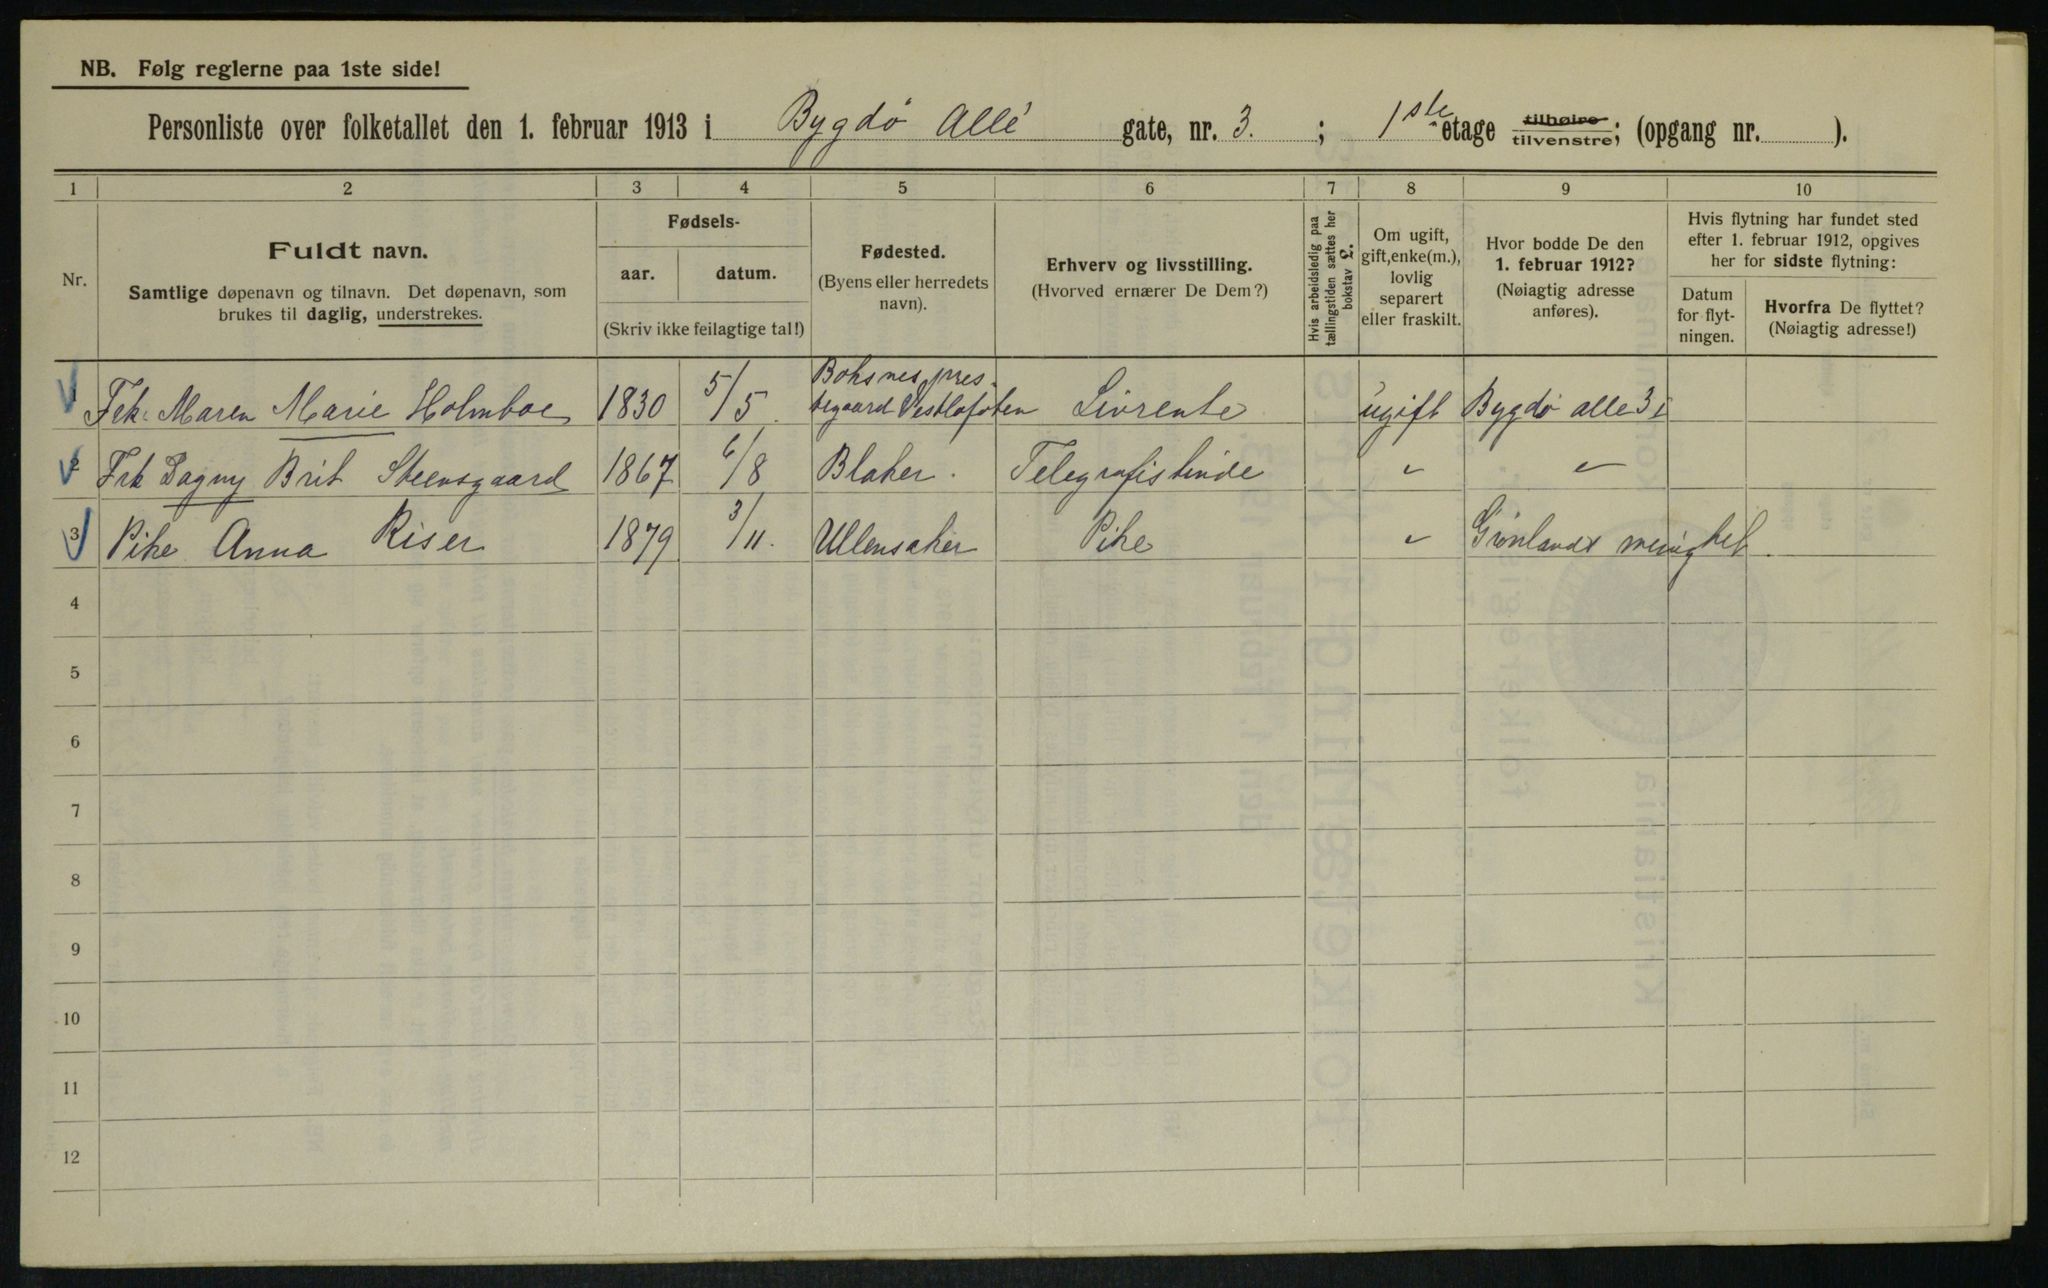 NB. Følg reglerne paa 1ste side!
Personliste over folketallet den 1. februar 1913 i Bygdø Allé gate, nr. 3. ; 1ste etage tilhøire tilvenstre; (opgang nr. ).
1 2 3 4 5 6 7 8 9 10
Nr.
Fuldt navn.
Samtlige døpenavn og tilnavn. Det døpenavn, som
brukes til daglig, understrekes.
Fødsels-
aar. datum.
(Skriv ikke feilagtige tal!)
Fødested.
(Byens eller herredets
navn).
Erhverv og livsstilling.
(Hvorved ernærer De Dem?)
Hvis arbeidsledig paa
tællingstiden sættes her
bokstav
Om ugift,
gift, enke(m.),
lovlig
separert
eller fraskilt.
Hvor bodde De den
1. februar 1912?
(Nøiagtig adresse
anføres).
Hvis flytning har fundet sted
efter 1. februar 1912, opgives
her for sidste flytning:
Datum
for flyt-
ningen.
Hvorfra De flyttet?
(Nøiagtig adresse!)
1 Frk. Maren Marie Holmboe 1830 5/5 Boksnes pres-
tegaard Vestlofoten Livrente ugift Bygdø alle 3 I
2 Frk Dagny Brit Steensgaard 1867 6/8 Blaker. Telegrafistinde " "
3 Pike Anna Riser 1879 3/11. Ullensaker Pike " Grønlands menighet.
4
5
6
7
8
9
10
11
12